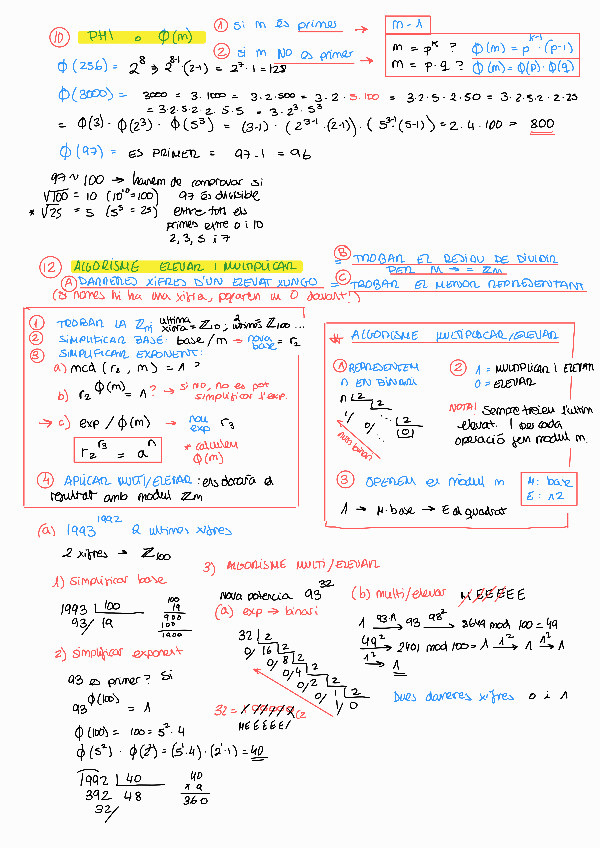 10 PHI o φ(m)
1 si m és primer → m - 1
2 si m NO es primer → m = p^k ? φ(m) = p^(k-1) · (p-1)
m = p·q ? φ(m) = φ(p)·φ(q)
φ(256) = 2^8 ⇒ 2^(8-1)·(2-1) = 2^7·1 = 128
φ(3000) = 3000 = 3·1000 = 3·2·500 = 3·2·5·100 = 3·2·5·2·50 = 3·2·5·2·2·25
= 3·2·5·2·2·5·5 = 3·2^3·5^3
= φ(3)·φ(2^3)·φ(5^3) = (3-1)·(2^(3-1)·(2-1))·(5^(3-1)·(5-1)) = 2·4·100 = 800
φ(97) = ES PRIMER = 97-1 = 96
97 ~ 100 → haurem de comprovar si
√100 = 10 (10^10 = 100) 97 és divisible
* √25 = 5 (5^5 = 25) entre tots els
primes entre 0 i 10
2, 3, 5 i 7
12 ALGORISME ELEVAR I MULTIPLICAR
A DARRERES XIFRES D'UN ELEVAT XUNGO
= B TROBAR EL RESIDU DE DIVIDIR
PER M → = Zm
= C TROBAR EL MENOR REPRESENTANT
(si només hi ha una xifra, posarem un 0 davant!)
1 TROBAR LA Zm última xifra = Z10, 2 últimes Z100 ...
2 SIMPLIFICAR BASE: base/m → nova base = r2
3 SIMPLIFICAR EXPONENT:
a) mcd (r2, m) = 1 ?
b) r2^φ(m) = 1 ? → si no, no es pot
simplificar l'exp.
→ c) exp / φ(m) → nou exp r3
r2^r3 = a^n
* calculem
φ(m)
4 APLICAR MULTI/ELEVAR: ens donarà el
resultat amb mòdul Zm
* ALGORISME MULTIPLICAR/ELEVAR
1 REPRESENTEM
n EN BINARI
n 2
1/ 2
0/ 2
0
núm binari
2 1 = MULTIPLICAR I ELEVAR
0 = ELEVAR
NOTA! Sempre treieu l'últim
elevat. I per cada
operació fem mòdul m.
3 OPEREM en mòdul m
M: base
E: ^2
1 → M·base → E al quadrat
(a) 1993^1992 2 últimes xifres
2 xifres → Z100
1) simplificar base
1993 100
93/ 19
100
19
900
100
1900
2) simplificar exponent
93 es primer? Si
93^φ(100) = 1
φ(100) = 100 = 5^2 · 4
φ(5^2)·φ(2^2) = (5^1·4)·(2^1·1) = 40
1992 40
392 48
32/
40
x 9
360
3) ALGORISME MULTI/ELEVAR
nova potència 93^32
(a) exp → binari
32 2
0/ 16 2
0/ 8 2
0/ 4 2
0/ 2 2
0/ 1 2
1/ 0
MEEEEE/
(b) multi/elevar MEEEEEE
1 → 93·1 93 → 93^2 8649 mod 100 = 49
49^2 → 2401 mod 100 = 1 → 1^2 1 → 1^2 1
→ 1^2 1
Dues darreres xifres 0 i 1